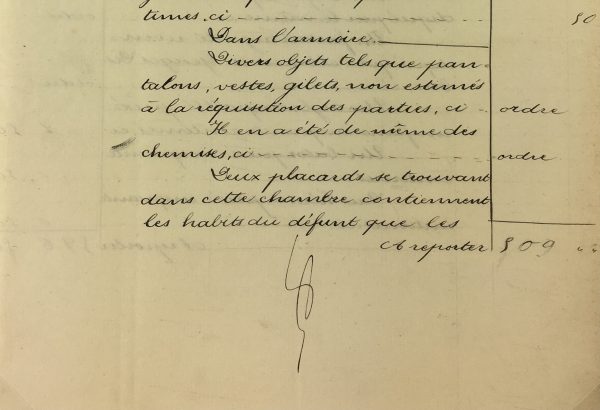 times, ci 50
Dans l'armoire.
Divers objets tels que pan-
talons, vestes, gilets, non estimés
à la réquisition des parties, ci ordre
Il en a été de même des
chemises, ci ordre
Deux placards se trouvant
dans cette chambre contiennent
les habits du défunt que les
A reporter 509 " "